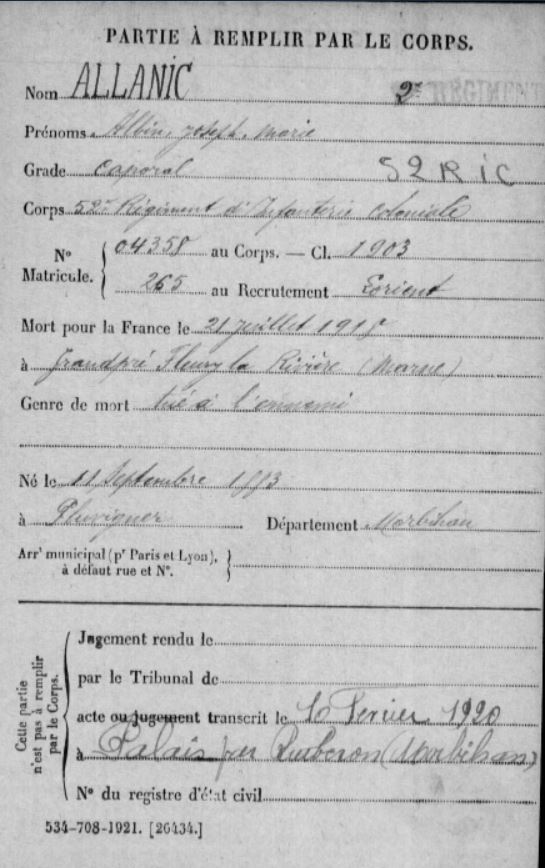 PARTIE À REMPLIR PAR LE CORPS.
Nom ALLANIC 2e RÉGIMENT
Prénoms Albin, Joseph, Marie
Grade Caporal 52 R i C
Corps 52e Régiment d'Infanterie Coloniale
No Matricule. 04358 au Corps. — Cl. 1903
265 au Recrutement Lorient
Mort pour la France le 21 juillet 1918
à Grandpré Fleury la Rivière (Marne)
Genre de mort tué à l'ennemi
Né le 11 Septembre 1883
à Pluvigner Département Morbihan
Arrt municipal (pr Paris et Lyon),
à défaut rue et No.
Cette partie
n'est pas à remplir
par le Corps.
Jugement rendu le
par le Tribunal de
acte ou jugement transcrit le 10 Fevrier 1920
à Palais par Quiberon (Morbihan)
No du registre d'état civil
534-708-1921. [26434.]